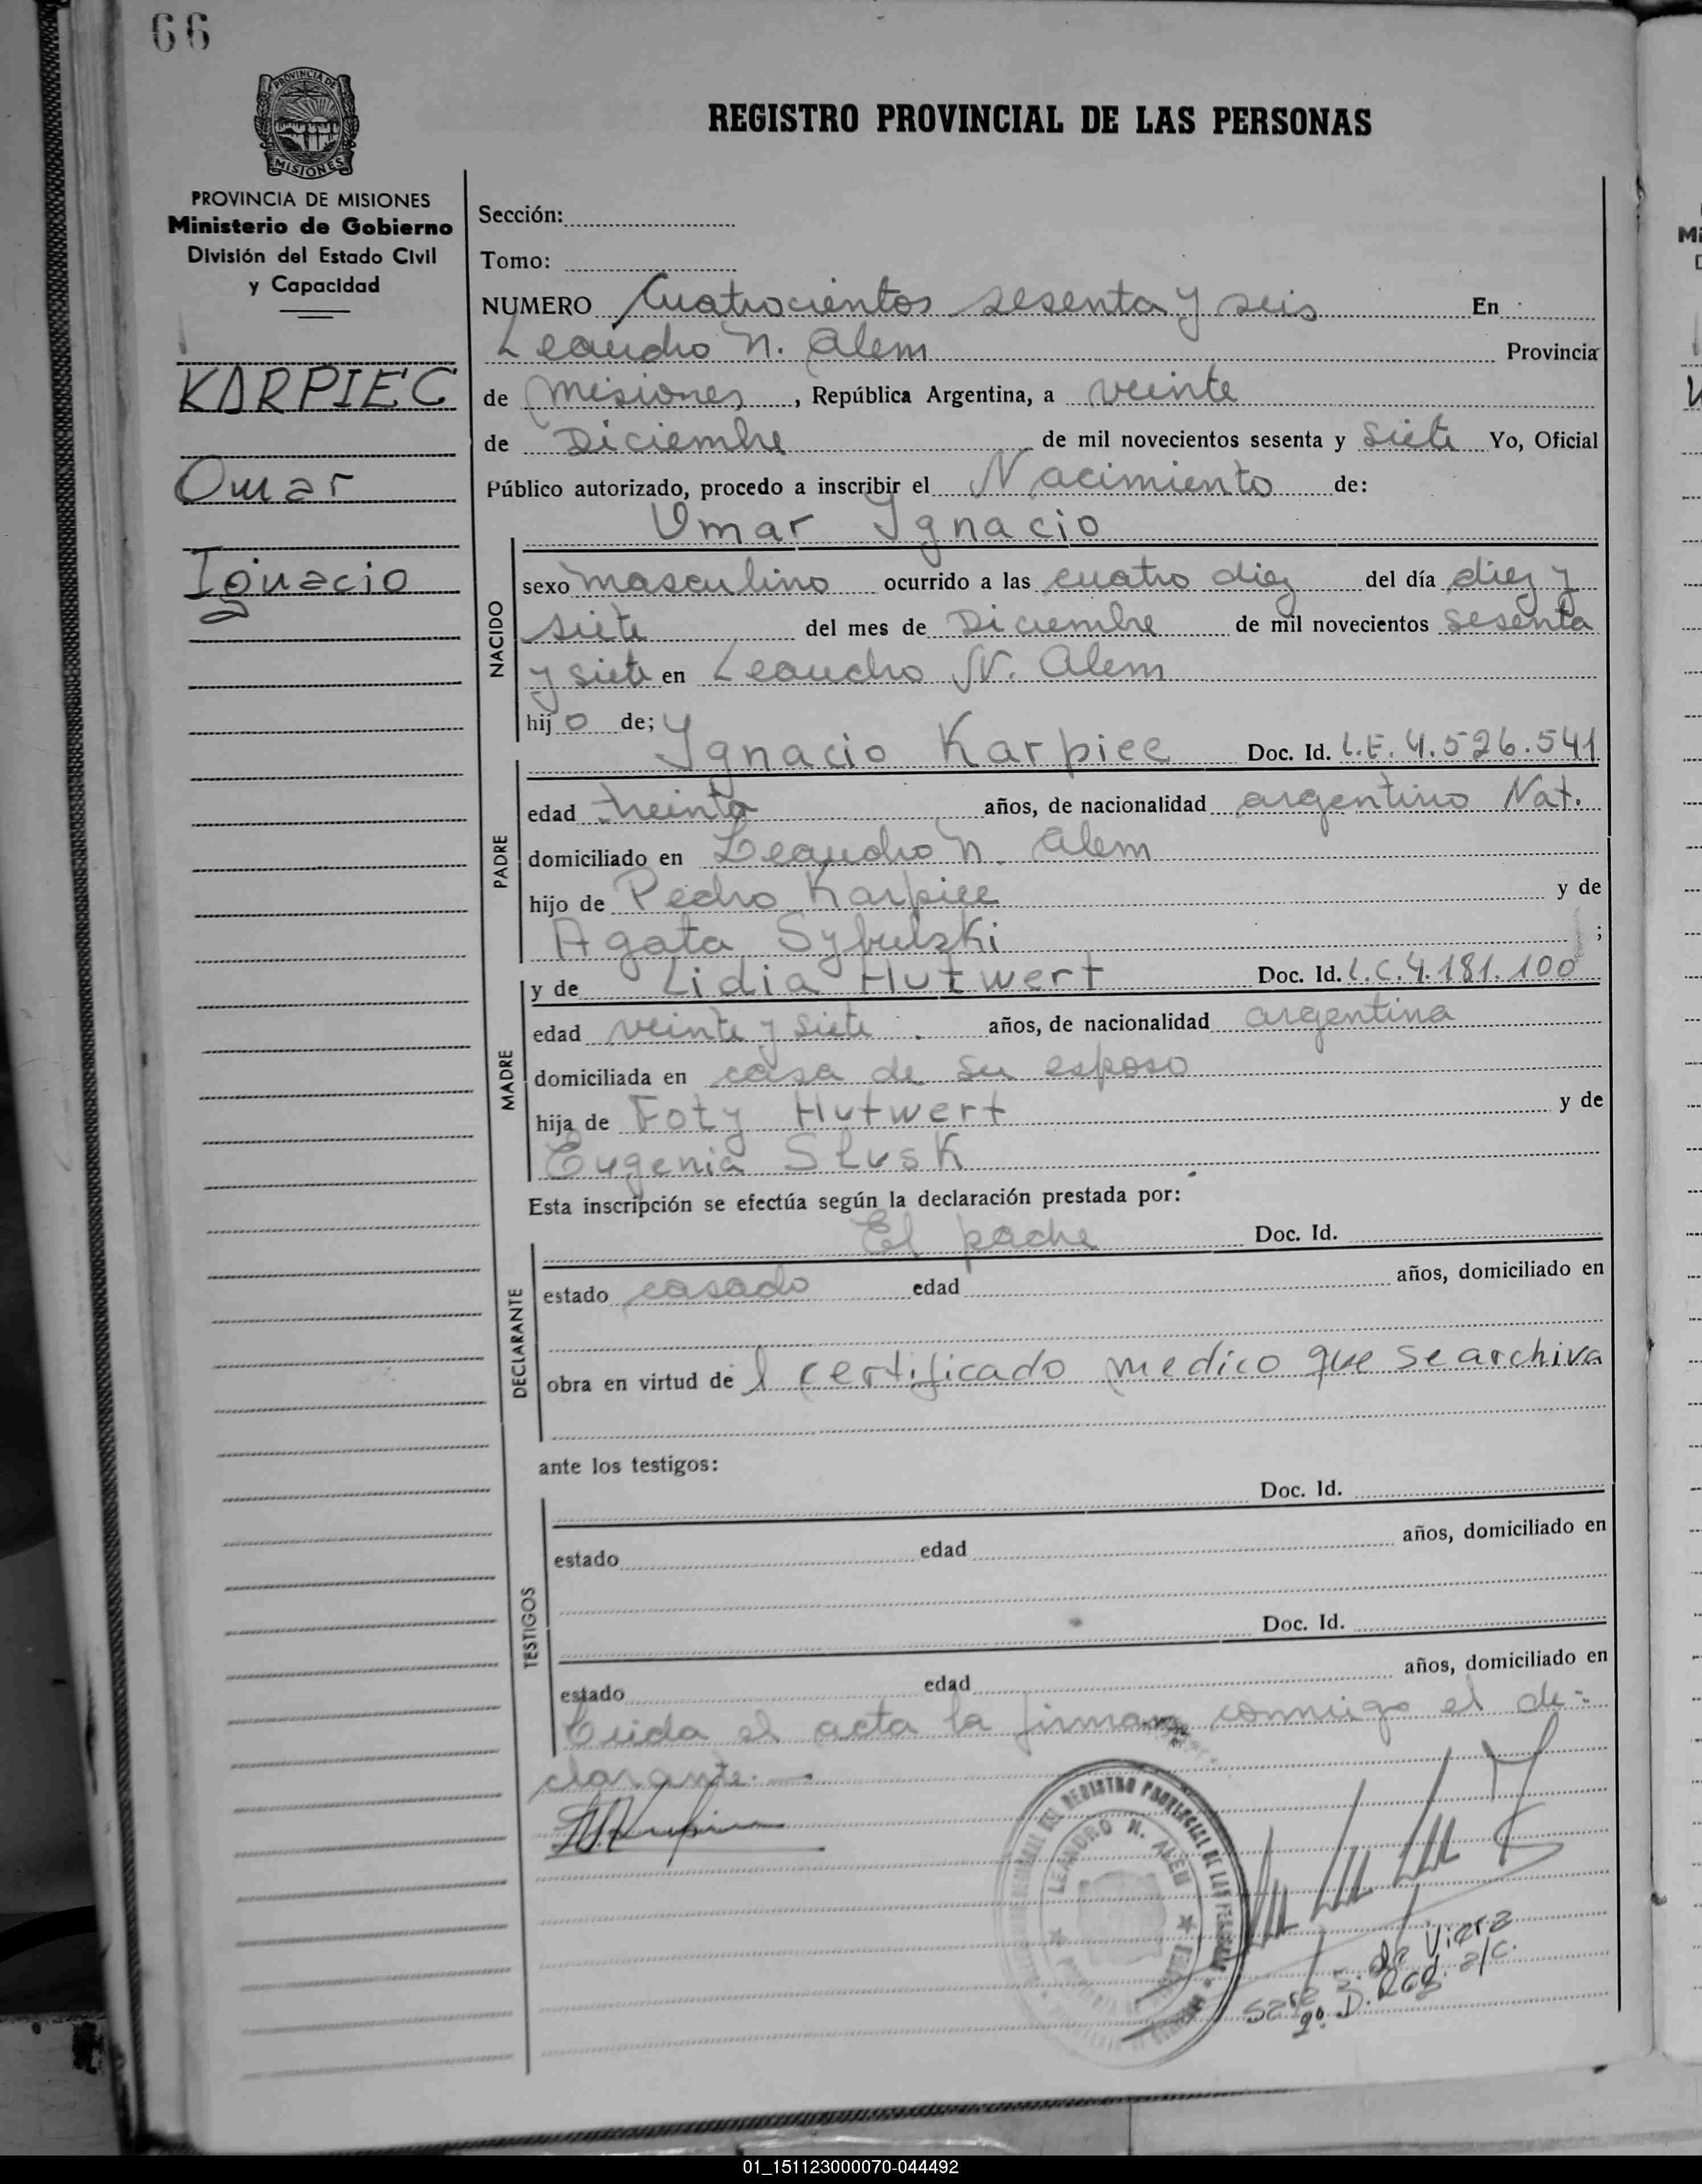 66
PROVINCIA DE
MISIONES
PROVINCIA DE MISIONES
Ministerio de Gobierno
División del Estado Civil
y Capacidad
KARPIEC
Omar
Ignacio
REGISTRO PROVINCIAL DE LAS PERSONAS
Sección:
Tomo:
NUMERO Cuatrocientos sesenta y seis En
Leandro N. Alem Provincia
de Misiones, República Argentina, a veinte
de Diciembre de mil novecientos sesenta y siete Yo, Oficial
Público autorizado, procedo a inscribir el Nacimiento de:
Omar Ygnacio
NACIDO
sexo masculino ocurrido a las cuatro diez del día diez y
siete del mes de Diciembre de mil novecientos sesenta
y siete en Leandro N. Alem
hijo de;
Ygnacio Karpiec Doc. Id. L.E. 4.526.541
PADRE
edad treinta años, de nacionalidad argentino Nat.
domiciliado en Leandro N. Alem
hijo de Pedro Karpiec y de
Agata Sybulzki ;
y de Lidia Hutwert Doc. Id. L.C. 4.181.100
MADRE
edad veinte y siete años, de nacionalidad argentina
domiciliada en casa de su esposo
hija de Foty Hutwert y de
Eugenia Slusk
Esta inscripción se efectúa según la declaración prestada por:
El padre Doc. Id.
DECLARANTE
estado casado edad años, domiciliado en
obra en virtud del certificado medico que se archiva
ante los testigos:
Doc. Id.
TESTIGOS
estado edad años, domiciliado en
Doc. Id.
estado edad años, domiciliado en
Leida el acta la firman conmigo el de-
clarante.—
REGISTRO PROVINCIAL DE LAS PERSONAS
LEANDRO N. ALEM
S. de Viera
D. Reg. a/c.
01_151123000070-044492